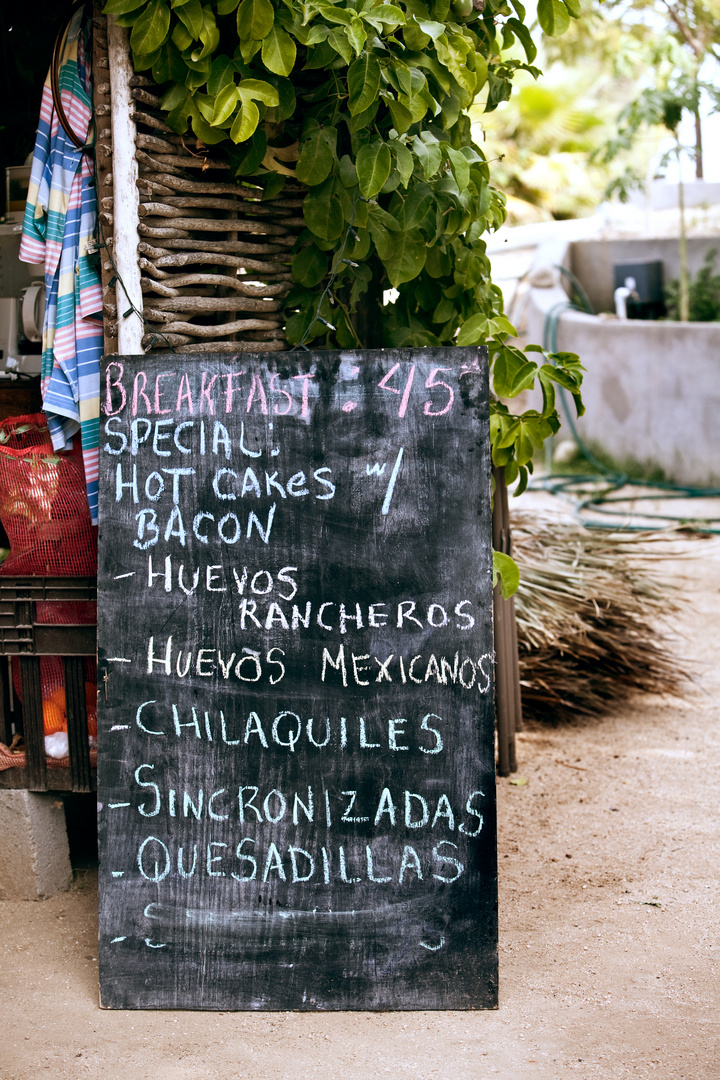 BREAKFAST: 45
SPECIAL:
HOT CAKES w/
BACON
- HUEVOS
RANCHEROS
- HUEVOS MEXICANOS
- CHILAQUILES
- SINCRONIZADAS
- QUESADILLAS
-